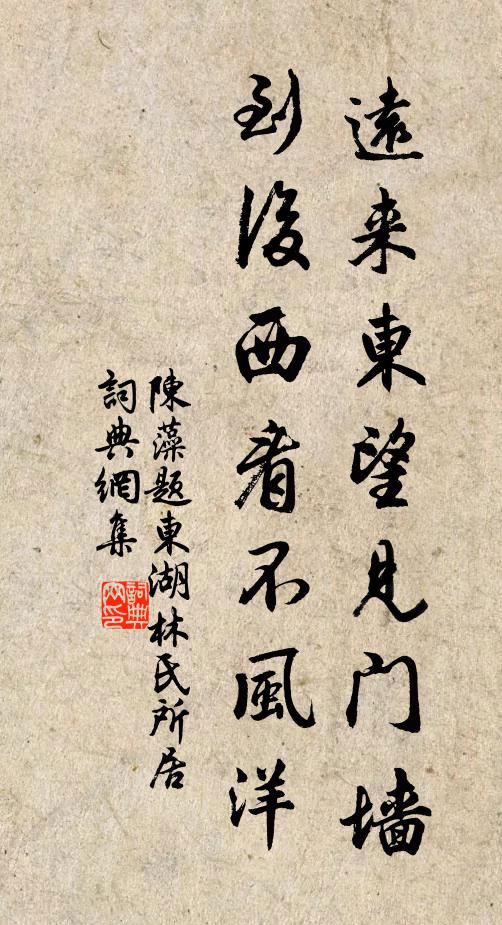 遠来東望見門墙
到後西看不風洋
陳藻題東湖林氏所居
詞典網集
詞典網印